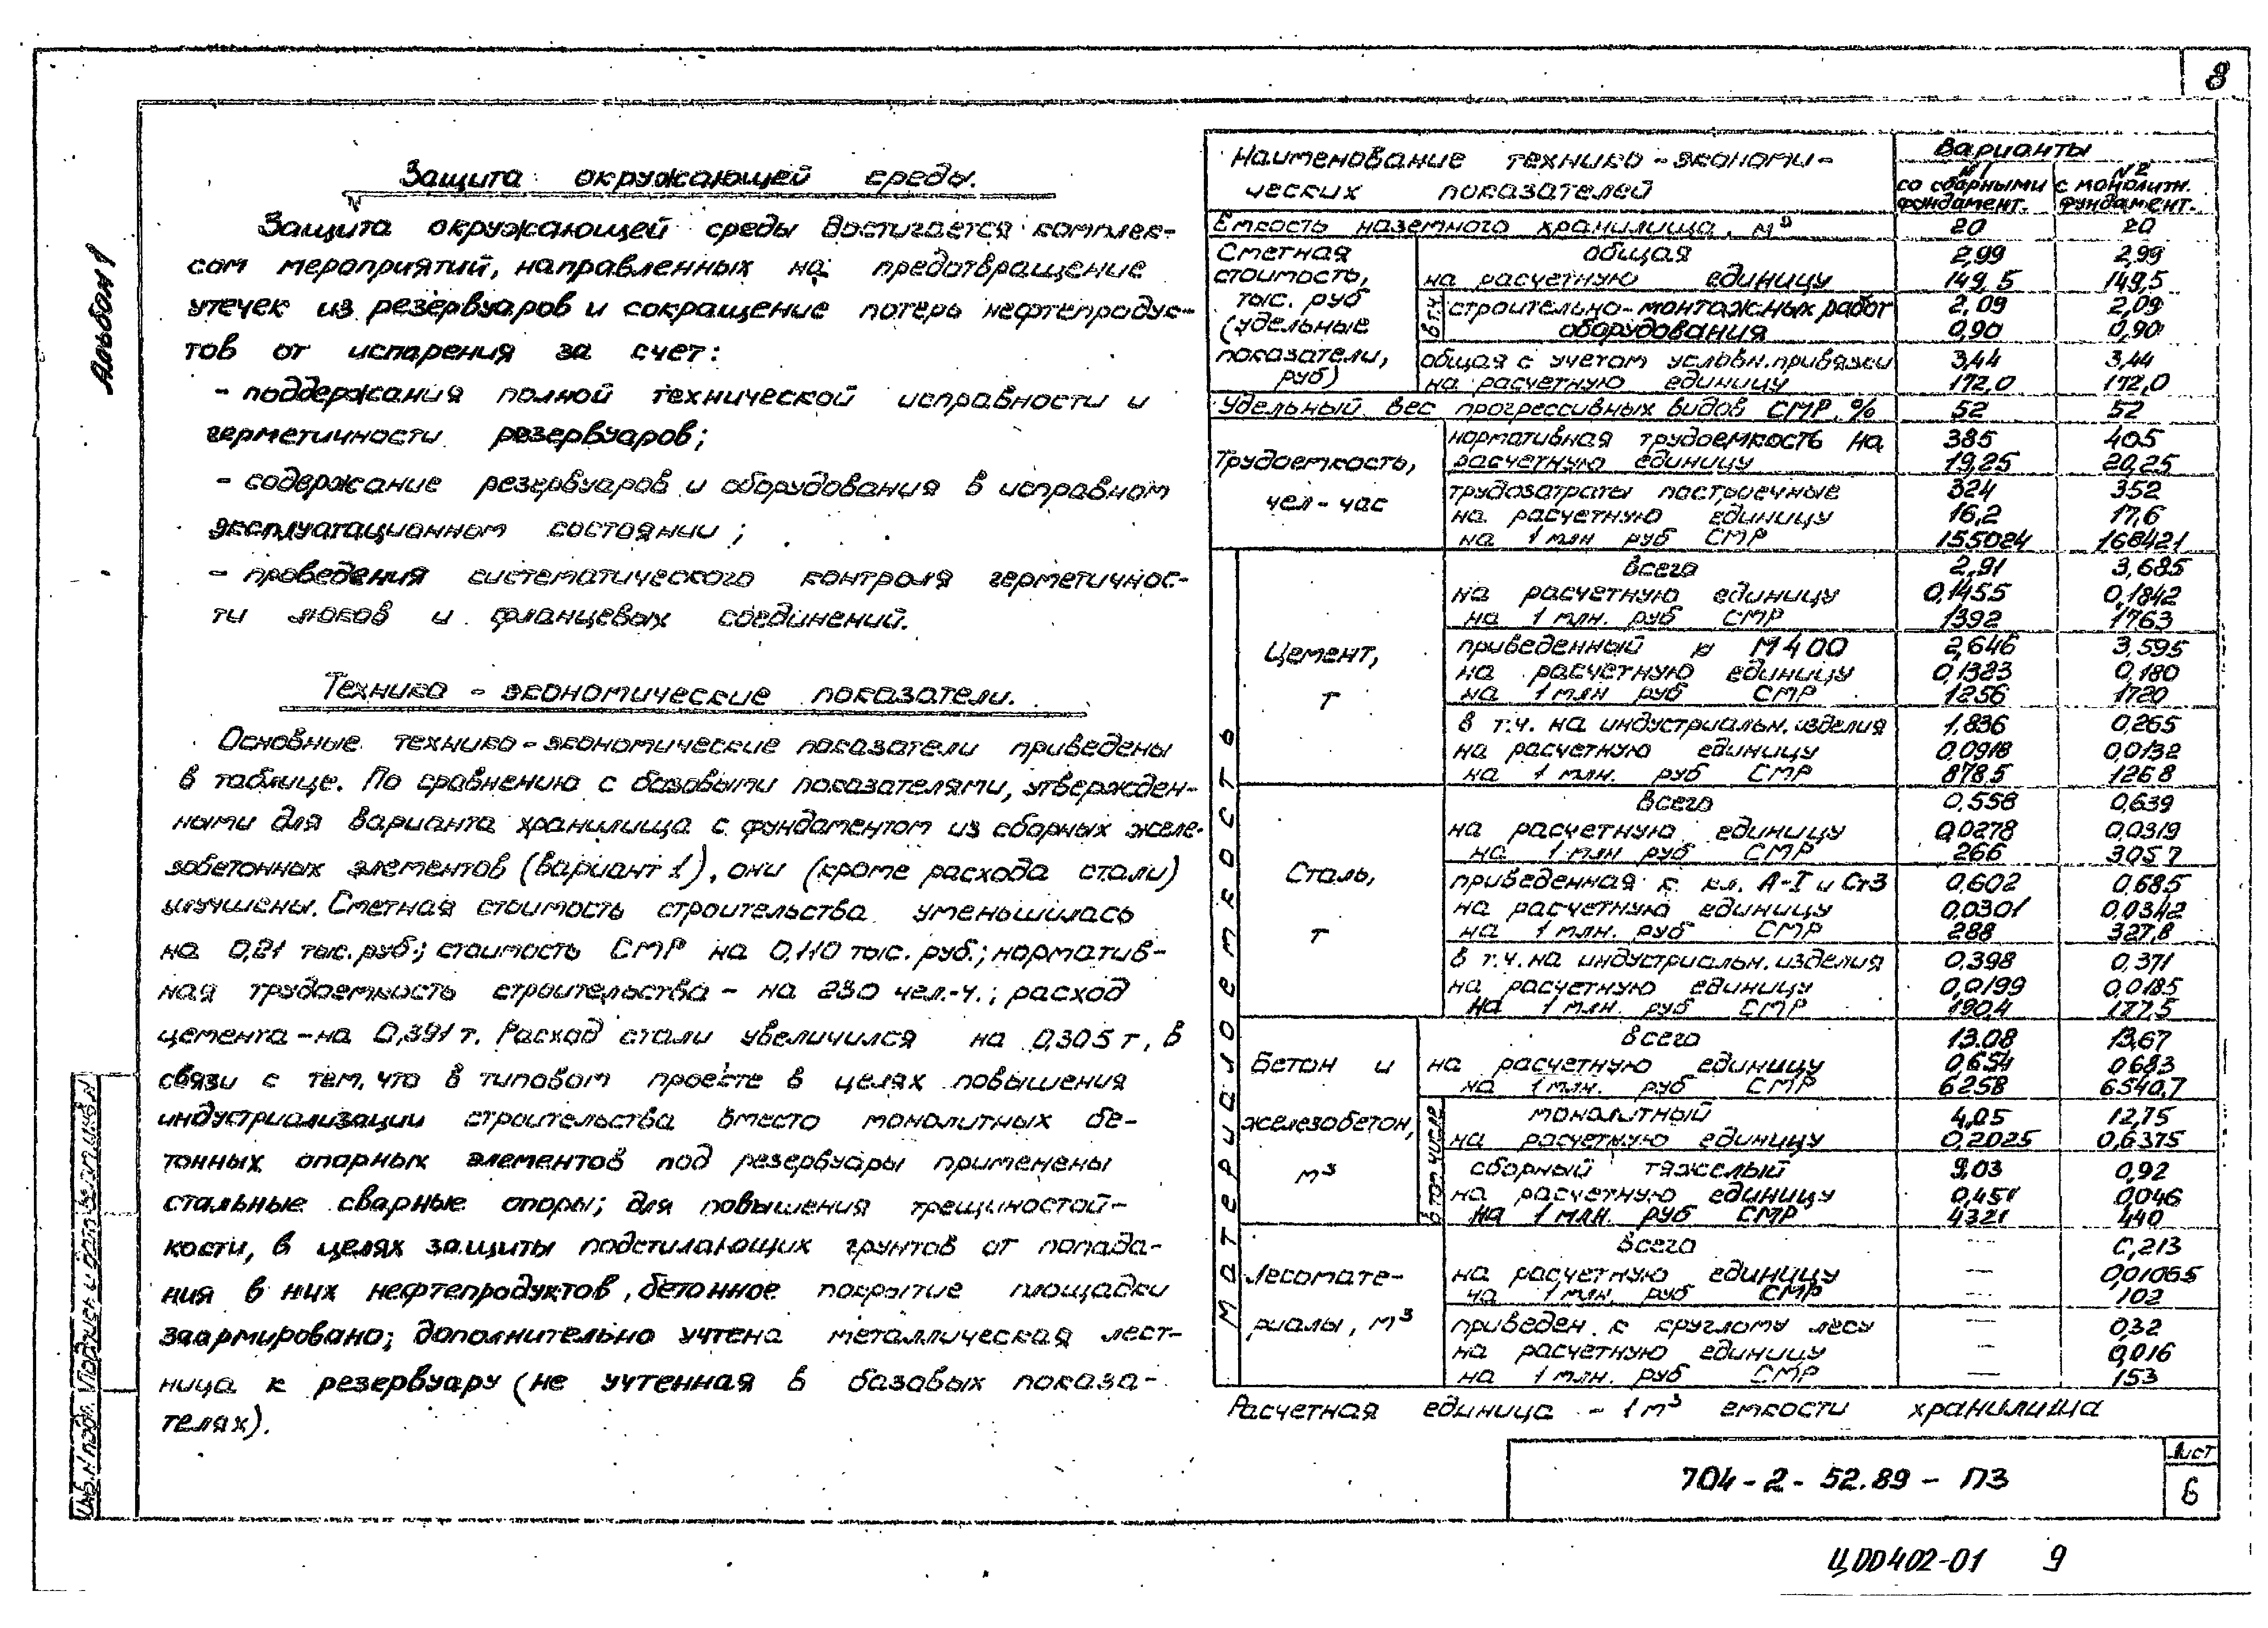 8
Альбом 1
Защита окружающей среды.
Защита окружающей среды достигается комплек-
сом мероприятий, направленных на предотвращение
утечек из резервуаров и сокращение потерь нефтепродук-
тов от испарения за счет:
- поддержания полной технической исправности и
герметичности резервуаров;
- содержание резервуаров и оборудования в исправном
эксплуатационном состоянии;
- проведения систематического контроля герметичнос-
ти люков и фланцевых соединений.
Технико - экономические показатели.
Основные технико - экономические показатели приведены
в таблице. По сравнению с базовыми показателями, утвержден-
ными для варианта хранилища с фундаментом из сборных желе-
зобетонных элементов (вариант 1), они (кроме расхода стали)
улучшены. Сметная стоимость строительства уменьшилась
на 0,21 тыс. руб.; стоимость СМР на 0,110 тыс. руб.; норматив-
ная трудоемкость строительства - на 230 чел.-ч.; расход
цемента - на 0,391 т. Расход стали увеличился на 0,305 т, в
связи с тем, что в типовом проекте в целях повышения
индустриализации строительства вместо монолитных бе-
тонных опорных элементов под резервуары применены
стальные сварные опоры; для повышения трещиностой-
кости, в целях защиты подстилающих грунтов от попада-
ния в них нефтепродуктов, бетонное покрытие площадки
заармировано; дополнительно учтена металлическая лест-
ница к резервуару (не учтенная в базовых показа-
телях).
Наименование технико - экономи-
ческих показателей
Варианты
N1 со сборными фундамент.
N2 с монолитн. фундамент.
Емкость наземного хранилища, м³ 20 20
Сметная стоимость, тыс. руб (удельные показатели, руб)
общая 2,99 2,99
на расчетную единицу 149,5 149,5
в т.ч. строительно-монтажных работ 2,09 2,09
оборудования 0,90 0,90
общая с учетом условн. привязки 3,44 3,44
на расчетную единицу 172,0 172,0
Удельный вес прогрессивных видов СМР, % 52 52
Трудоемкость, чел - час
нормативная трудоемкость на 385 405
расчетную единицу 19,25 20,25
трудозатраты построечные 324 352
на расчетную единицу 16,2 17,6
на 1 млн руб СМР 155024 168421
Материалоемкость
Цемент, т
всего 2,91 3,685
на расчетную единицу 0,1455 0,1842
на 1 млн. руб СМР 1392 1763
приведенный к М400 2,646 3,595
на расчетную единицу 0,1323 0,180
на 1 млн руб СМР 1256 1720
в т.ч. на индустриальн. изделия 1,836 0,265
на расчетную единицу 0,0918 0,0132
на 1 млн. руб СМР 878,5 126,8
Сталь, т
всего 0,558 0,639
на расчетную единицу 0,0278 0,0319
на 1 млн руб СМР 266 305,7
приведенная к кл. А-I и Ст3 0,602 0,685
на расчетную единицу 0,0301 0,0342
на 1 млн. руб СМР 288 327,8
в т.ч. на индустриальн. изделия 0,398 0,371
на расчетную единицу 0,0199 0,0185
на 1 млн. руб СМР 190,4 177,5
Бетон и железобетон, м³
всего 13.08 13,67
на расчетную единицу 0,654 0,683
на 1 млн. руб СМР 6258 6540,7
в том числе
монолитный 4,05 12,75
на расчетную единицу 0,2025 0,6375
сборный тяжелый 9,03 0,92
на расчетную единицу 0,451 0,046
на 1 млн. руб СМР 4321 440
Лесомате-
риалы, м³
всего — 0,213
на расчетную единицу — 0,01065
на 1 млн. руб СМР — 102
приведен. к круглому лесу — 0,32
на расчетную единицу — 0,016
на 1 млн. руб СМР — 153
Расчетная единица - 1 м³ емкости хранилища
704 - 2 - 52.89 - ПЗ
Лист
6
Инв. N подл. Подпись и дата Взам. инв. N
ЦОО402-01 9